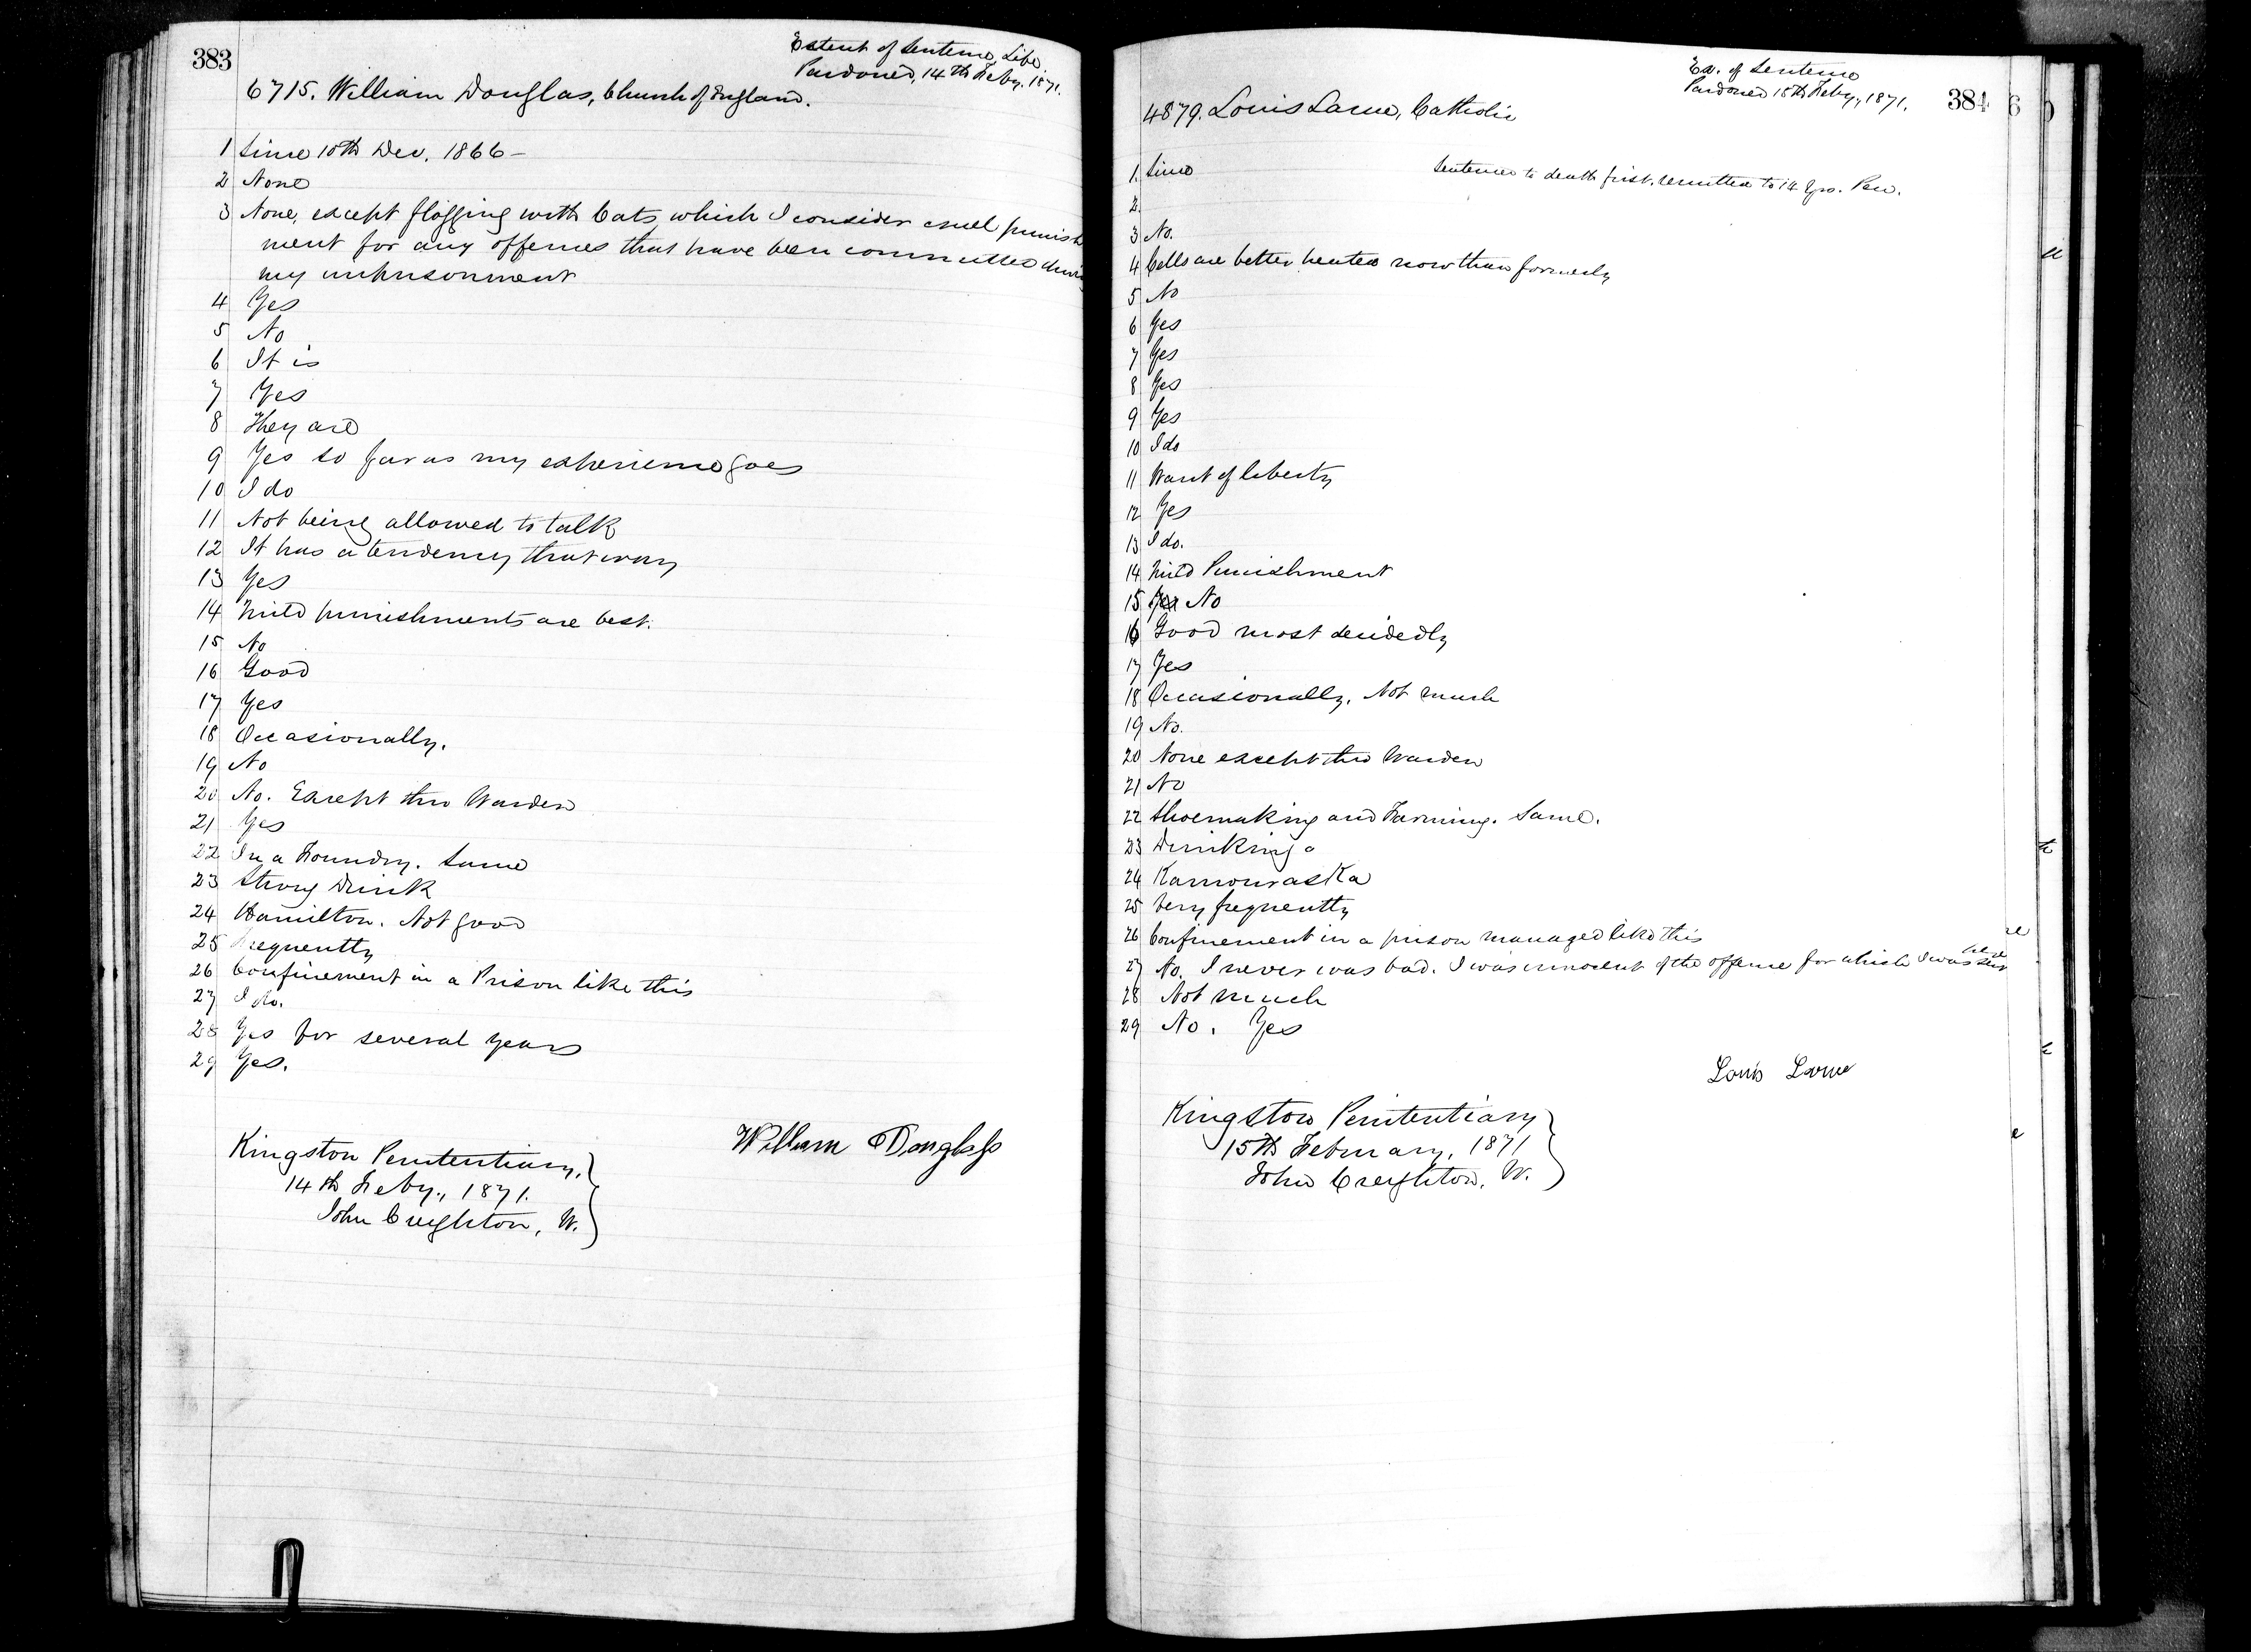 383
Extent of Sentence, Life.
Pardoned, 14th Feby. 1871.
6715. William Douglas, Church of England.
1 Since 10th Dec. 1866 –
2 None
3 None, except flogging with Cats which I consider cruel punish
ment for any offences that have been committed during
my imprisonment
4 Yes
5 No
6 It is
7 Yes
8 They are
9 Yes so far as my experience goes
10 I do
11 Not being allowed to talk
12 It has a tendency that way
13 Yes
14 Mild punishments are best.
15 No
16 Good
17 Yes
18 Occasionally.
19 No
20 No. Except the Warden
21 Yes
22 In a Foundry. Same
23 Strong Drink
24 Hamilton. Not good
25 Frequently
26 Confinement in a Prison like this
27 I do.
28 Yes for several years
29 Yes.
William Douglass
Kingston Penitentiary,
14th Feby., 1871.
John Creighton, W.
384
Ex. of Sentence
Pardoned 15th Feby., 1871.
4879. Louis Larue, Catholic
1 Since
Sentenced to death first, remitted to 14 Yrs. Pen.
2
3 No.
4 Cells are better heated now than formerly
5 No
6 Yes
7 Yes
8 Yes
9 Yes
10 I do
11 Want of liberty
12 Yes
13 I do.
14 Mild Punishment
15 Yes No
16 Good most decidedly
17 Yes
18 Occasionally. Not much
19 No.
20 None except the Warden
21 No
22 Shoemaking and Farming. Same.
23 Drinking
24 Kamouraska
25 Very frequently
26 Confinement in a prison managed like this
27 No. I never was bad. I was innocent of the offence for which I was sent here
28 Not much
29 No. Yes
Louis Larue
Kingston Penitentiary
15th February, 1871
John Creighton, W.